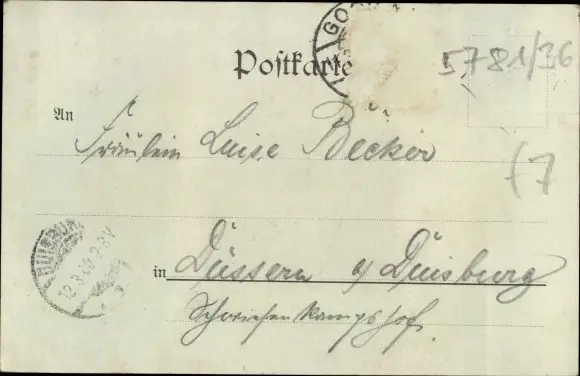 Postkarte
5781/36
An
Fräulein Luise Becker
(7
in Düssern a/ Duisburg
12.3.00. 2-3N